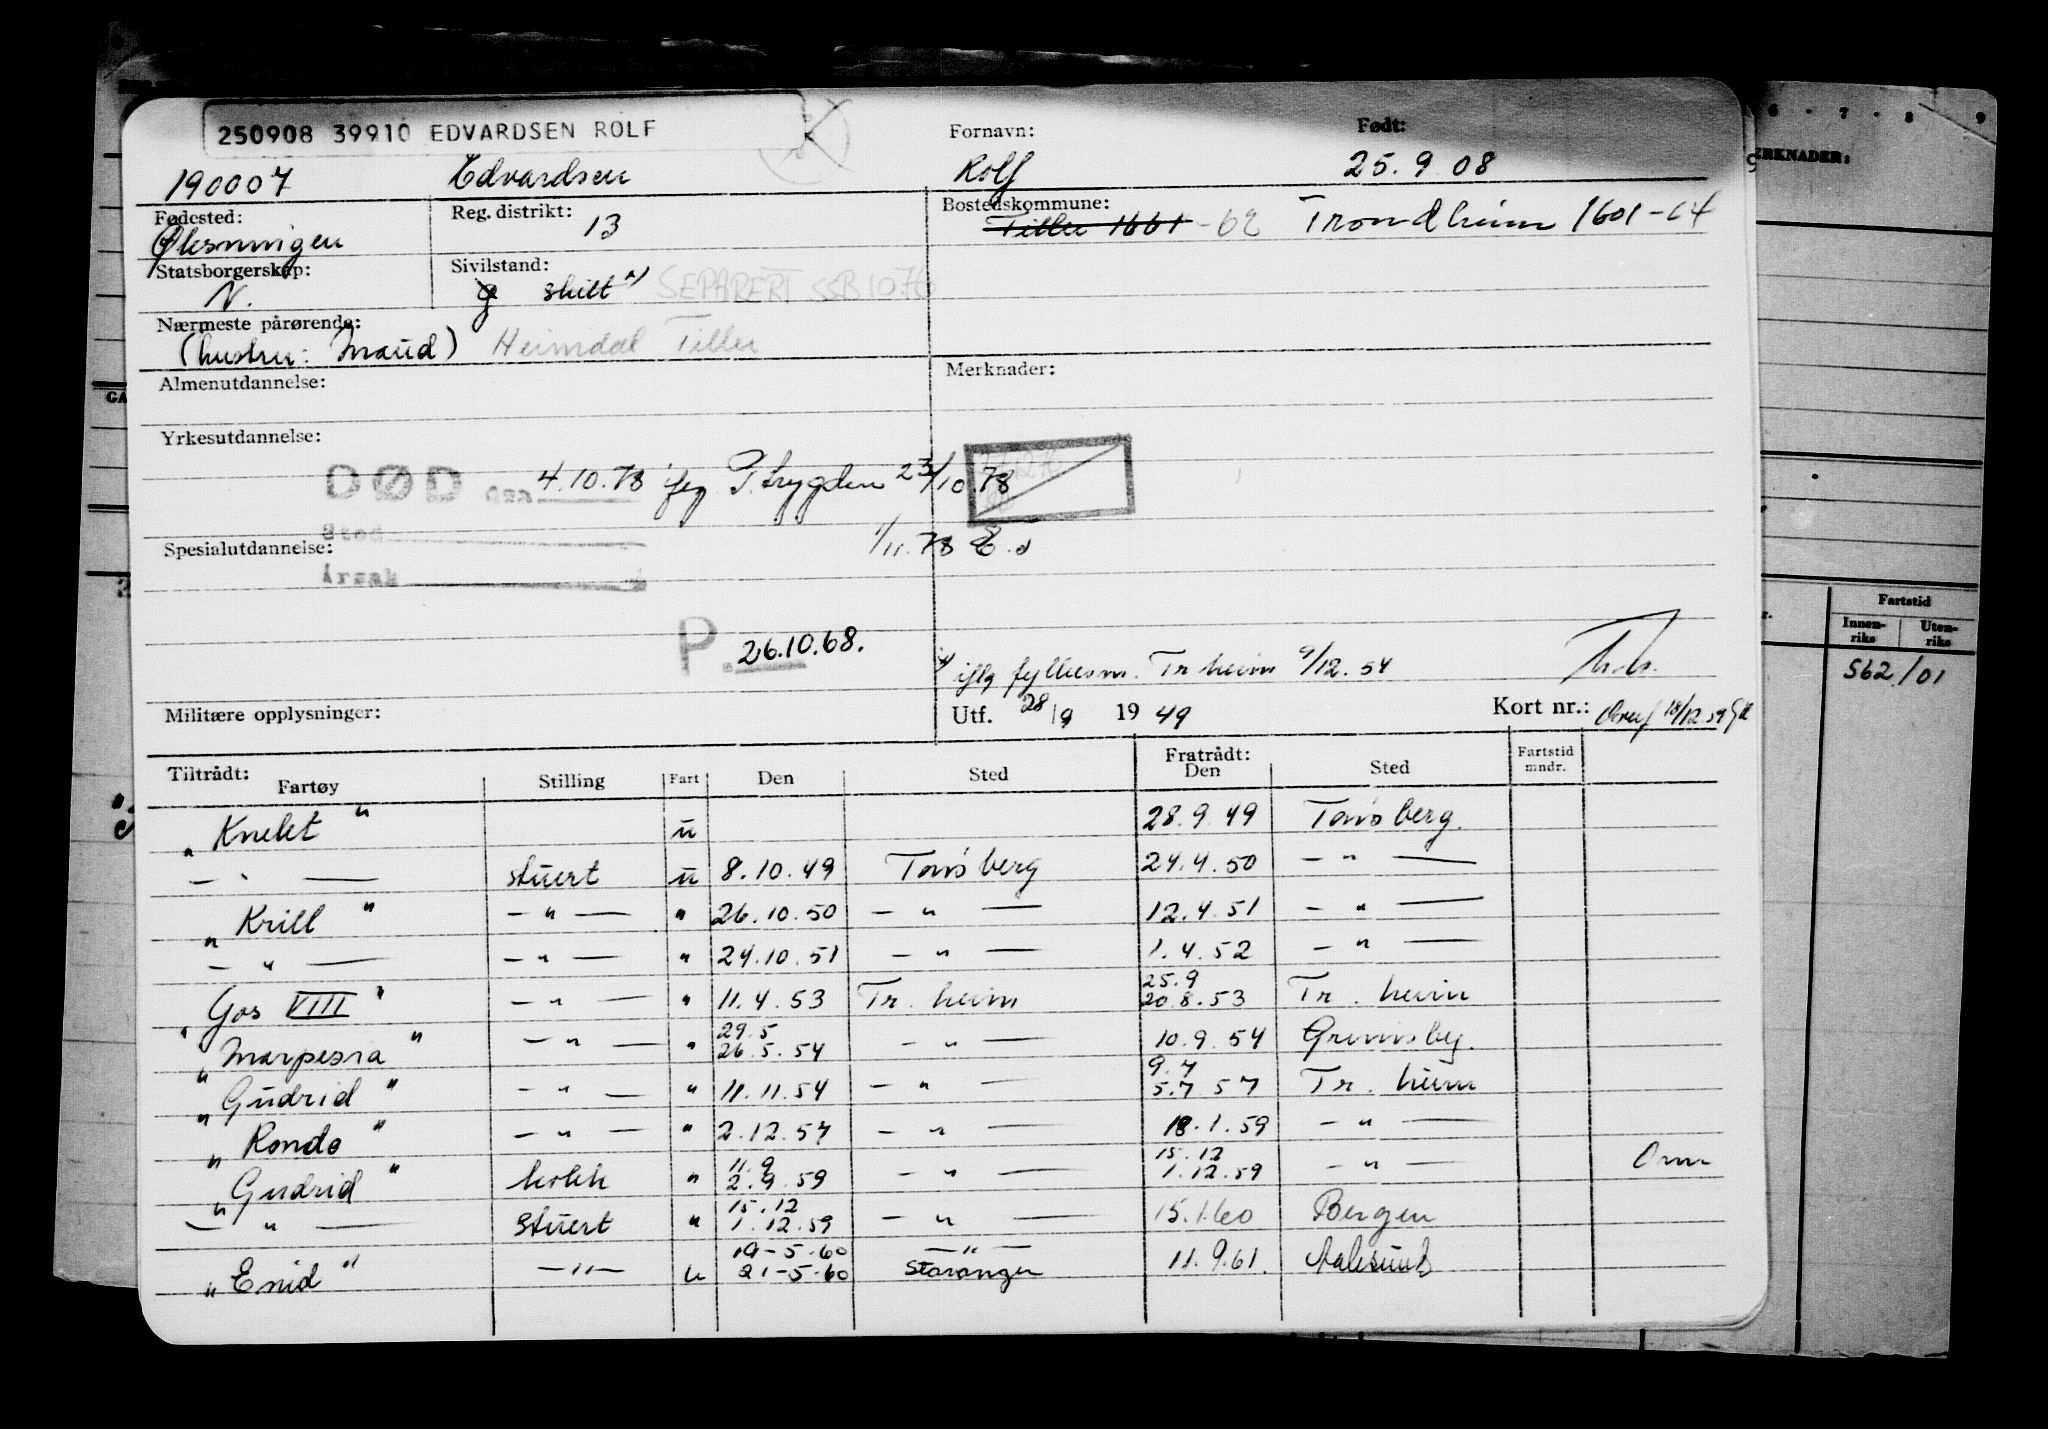 6 - 7 - 8 9
ERKNADER:
250908 39910 EDVARDSEN ROLF
Fornavn: Født:
190007 Edvardsen Rolf 25.9.08
Fødested: Reg. distrikt: Bostedskommune:
13 Tiller 1661 -62 Trondheim 1601-64
Statsborgerskap: Sivilstand:
N. g skilt x) SEPARERT SSB 10.76
Nærmeste pårørende:
(hustru: Maud) Heimdal Tiller
Almenutdannelse: Merknader:
Yrkesutdannelse:
DØD den 4.10.78 ifg 23/10.78
Sted
Spesialutdannelse: 1/11.78
Årsak
P. 26.10.68.
x) iflg fyllesm. Tr.heim 9/12.54
Militære opplysninger: Utf. 28/9 1949 Kort nr.: 18/12.59
Fartstid
Innen- Uten-
riks riks
562/01
Tiltrådt: Fratrådt: Fartstid
Fartøy Stilling Fart Den Sted Den Sted mndr.
"Knelt" u 28.9.49 Tønsberg.
— " — stuert u 8.10.49 Tønsberg 24.4.50 — " —
"Krill" — " — " 26.10.50 — " — 12.4.51 — " —
— " — — " — " 24.10.51 — " — 1.4.52 — " —
25.9
"Gos VIII" — " — " 11.4.53 Tr.heim 20.8.53 Tr.heim
29.5
"Marpesia" — " — " 26.5.54 — " — 10.9.54 Grimsby.
9.7
"Gudrid" — " — " 11.11.54 — " — 5.7.57 Tr.heim
"Rondo" — " — " 2.12.57 — " — 18.1.59 — " —
11.9 15.12
"Gudrid" kokk " 2.9.59 — " — 1.12.59 — " —
15.12
— " — stuert " 1.12.59 — " — 15.1.60 Bergen
19-5-60 — " —
"Enid" — " — u 21-5-60 Stavanger 11.9.61. Aalesund